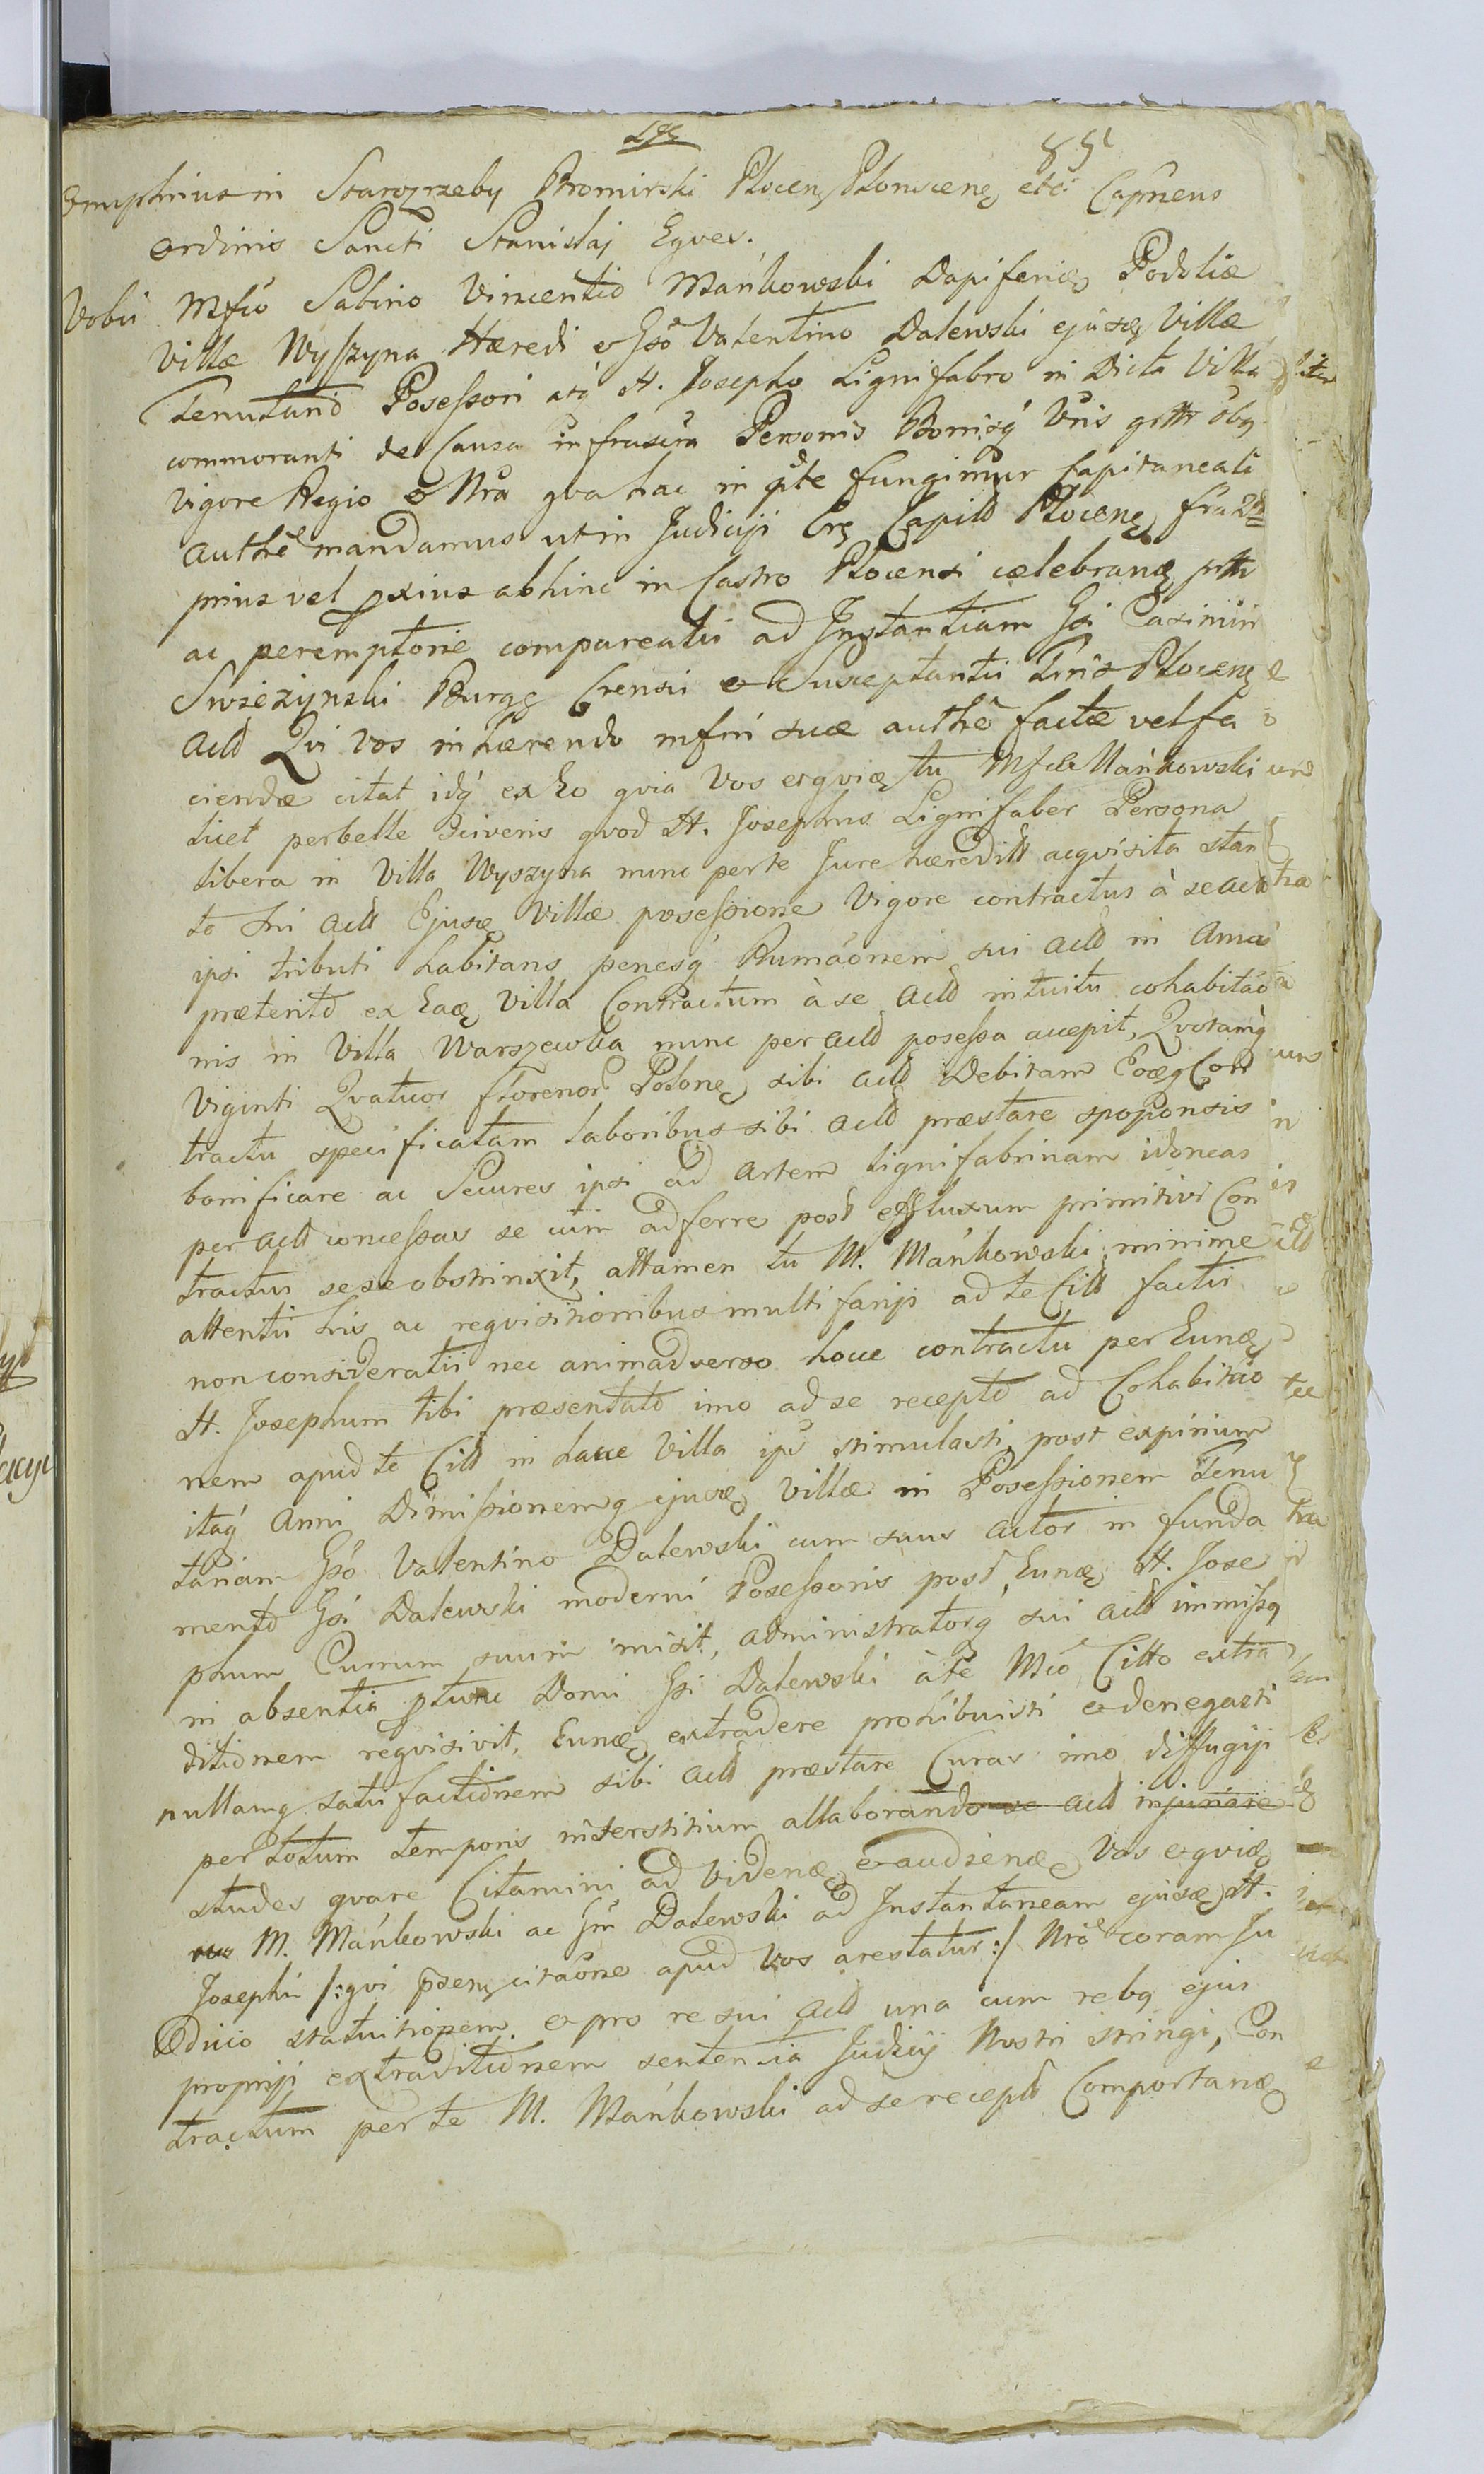 85
Onuphrius in Starozrzeby Bromirski Plocen, Plonscenę etc Capneus
ordinis Sancti Stanislaj Eques.
Vobis Mfco Sabino Vincentio Mańkowski Dapiferidę Podoliæ
Villæ Wyszyna Hæredi & Gso Valentino Dalewski ejusdę Villæ
Tenutario Posessori atq H. Josepho Lignifabro in Dicta Villa
commoranti de Causa infrascra Personis Bonisq Vris grttr obq
vigore Regio & Nra qva hac in pte fungimur Capitaneali
Authte mandamus ut in Judicijs Crę Capild Plocenę fra 2da
prius vel pxius abhinc in Castro Plocensi celebranę prttr
ac peremptorie compareatis ad Instantiam Gsi Casimiri
Swiezynski Burgę Crensis & Susceptantis Trris Plocenę
Actt Qvi vos inhærendo mfni suæ authte factæ vel fa
ciendæ citat idq ex Eo qvia Vos & qvidę tu Mfce Mańkowski
licet perbelle sciveris qvod H. Josephus Lignifaber Persona
libera in Villa Wyszyna nunc per te Jure hæreditt acqvisita stan
te sui actt Ejusdę Villæ posessione Vigore contractus à se actt
ipsi tributi habitans penesq Rumãonem sui actt in Anno
præterito ex Eadę Villa Contractum à se actt intuitu cohabitão
nis in Villa Warszewka nunc per actt posessa accepit, Qvotamq
Viginti Qvatuor florenor Polonę sibi actt Debitam Eodęq Con
tractu specificatam laboribus sibi actt præstare spopondis
bonificare ac Secures ipsi ad artem lignifabrinam idoneas
per actt concessas se cum adferre post effluxum primitivi Con
tractus sese obstrinxit, attamen tu M. Mańkowski minime
attentis his ac reqvisitionibus multifarijs ad te Citt factis
non consideratis nec animadverso hocce contractu per Eundę
H. Josephum tibi præsentato imo ad se recepto ad Cohabitão
nem apud te Citt in hacce Villa ips stimulasti post expirium
itaq Anni Dimissionemq ejusdę Villæ in Posessionem Tenu
tariam Gso Valentino Dalewski cum suus actor in funda
mento Gsi Dalewski moderni Posessoris post Eundę H. Jose
phum Currum suum misit, administratorq sui actt immissq
in absentia ptunc Domi Gsi Dalewski à te Mco Citto extra
ditionem reqvisivit, Eundę extradere prohibuisti & denegasti
nullamq satisfactionem sibi actt præstare Curas imo diffugijs
per totum temporis interstitium allaborando se actt injuriare
studes qvare Citamini ad Videndę & audiendę Vos & qvidę
M. Mańkowski ac Gm Dalewski ad Instantaneam ejusdę H.
Josephi /: qvi præsenę citãone apud Vos arestatur :/ Nro coram Ju
dicio statuitionem & pro re sui actt una cum rebq ejus
proprijs extraditionem sententia Judicij Nostri stringi, Con
tractum per te M. Mańkowski ad se recept Comportandę